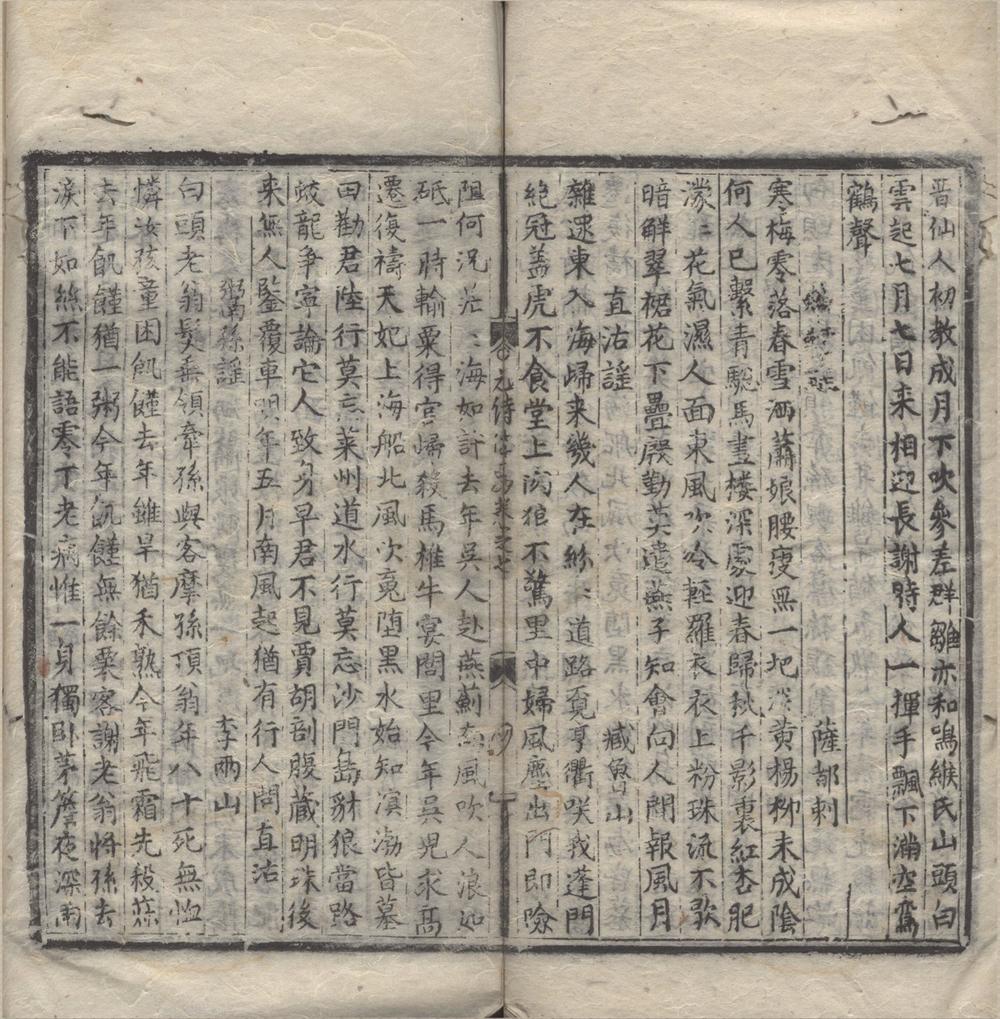 晋仙人初教成月下吹參差群雛亦和鳴緱氏山頭白
雲起七月七日来相迎長謝時人一揮手飄下滿空鸞
鶴聲
薩都剌
寒梅零落春雪洒蕭娘腰瘦無一把淡黃楊柳未成陰
何人已繫青驄馬畫樓深處迎春歸鞦千影裏紅杏肥
濛〻花氣濕人面東風吹冷輕羅衣衣上粉珠流不歇
暗解翠裙花下疊殷勤莫遣燕子知會向人間報風月
直沽謠　臧魯山
雜遝東入海歸来幾人在紛〻道路覔亨衢咲我蓬門
絶冠盖虎不食堂上肉狼不驚里中婦風塵出門即險
阻何况茫〻海如許去年吳人赴燕薊北風吹人浪如
砥一時輸粟得官歸殺馬椎牛宴閭里今年吳兒求高
遷復禱天妃上海船北風吹䰟堕黑水始知溟渤皆墓
田勸君陸行莫忘萊州道水行莫忘沙門島豺狼當路
蛟龍争寧論它人致身早君不見賈胡剖腹藏明珠後
来無人鑒覆車明年五月南風起猶有行人問直沽
粥孫謠　李兩山
白頭老翁髮垂領牽孫與客摩孫頂翁年八十死無恤
憐汝孩童困飢饉去年雖旱猶禾熟今年飛霜先殺菽
去年飢饉猶一粥今年飢饉無餘粟客謝老翁將孫去
淚下如絲不能語零丁老病惟一身獨卧茅簷夜深雨
元詩
卷之七
四